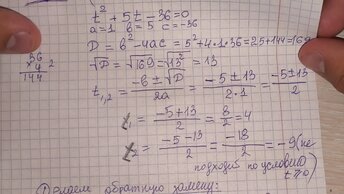 t² + 5t - 36 = 0
a = 1 b = 5 c = -36
D = b² - 4ac = 5² + 4·1·36 = 25 + 144 = 169
36
× 4
144
2
√D = √169 = √13² = 13
t₁,₂ = (-b ± √D)/2a = (-5 ± 13)/(2·1) = (-5 ± 13)/2
t₁ = (-5 + 13)/2 = 8/2 = 4
t₂ = (-5 - 13)/2 = -18/2 = -9 (не
подходит по условию
t ≥ 0)
обратную замену: